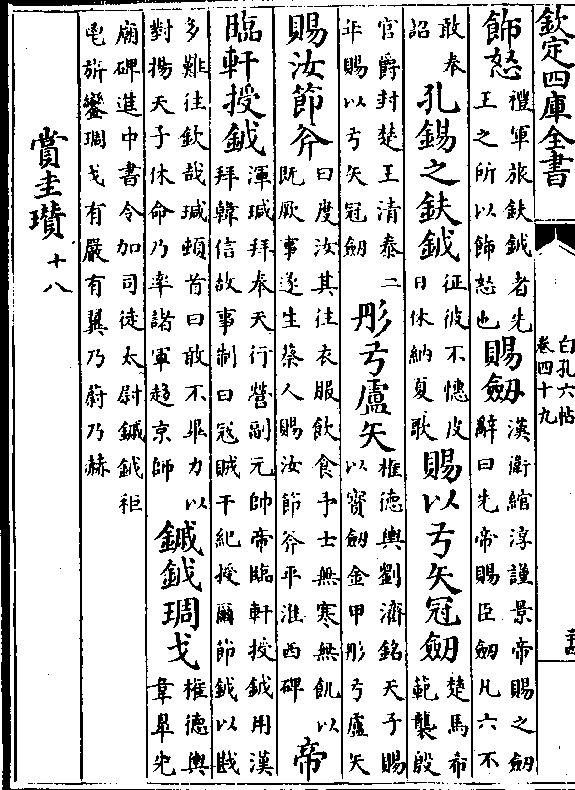 欽定四庫全書
白孔六帖
卷四十九
飾怒
禮軍旅鈇鉞者先
王之所以飾怒也
賜劔
漢衛綰淳謹景帝賜之劔
辭曰先帝賜臣劔凡六不
敢奉
詔
孔錫之鈇鉞
征彼不憓皮
日休納夏歌
賜以弓矢冠劔
楚馬希
範襲殷
官爵封楚王清泰二
年賜以弓矢冠劔
彤弓盧矢
權德輿劉濟銘天子賜
以寳劔金甲彤弓盧矢
賜汝節斧
曰度汝其往衣服飲食予士無寒無飢以
既厥事遂生蔡人賜汝節斧平淮西碑
帝
臨軒授鉞
渾瑊拜奉天行營副元帥帝臨軒授鉞用漢
拜韓信故事制曰冦賊干紀授爾節鉞以戡
多難往欽哉瑊頓首曰敢不畢力以
對揚天子休命乃率諸軍趨京師
鏚鉞琱戈
權德輿
韋臯先
廟碑進中書令加司徒太尉鏚鉞秬
鬯旂鑾琱戈有嚴有翼乃蔚乃赫
賞圭瓚十八